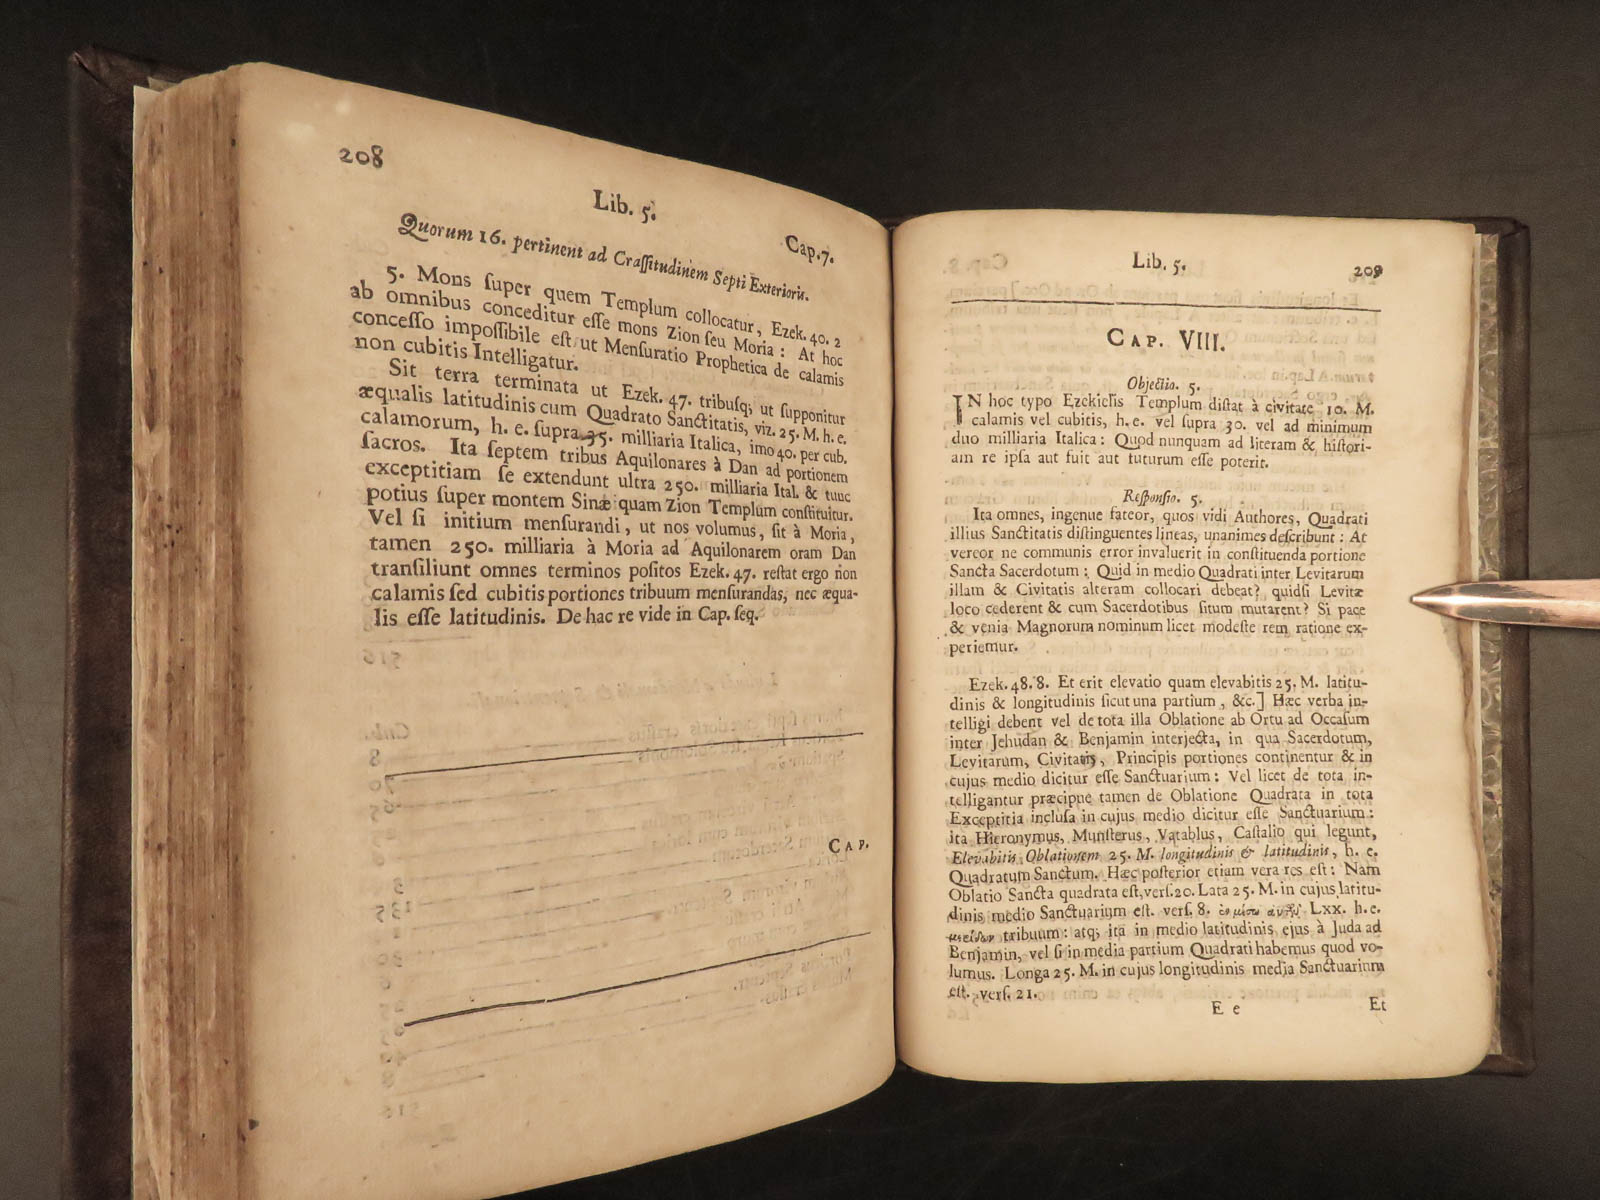 208
Lib. 5.
Cap. 7.
Quorum 16. pertinent ad Craſſitudinem Septi Exterioris.
5. Mons ſuper quem Templum collocatur, Ezek. 40. 2
ab omnibus conceditur eſſe mons Zion ſeu Moria : At hoc
conceſſo impoſſibile eſt, ut Menſuratio Prophetica de calamis
non cubitis Intelligatur.
Sit terra terminata ut Ezek. 47. tribuſq; ut ſupponitur
æqualis latitudinis cum Quadrato Sanctitatis, viz. 25. M. h. e.
calamorum, h. e. ſupra 35. milliaria Italica, imo 40. per cub.
ſacros. Ita ſeptem tribus Aquilonares à Dan ad portionem
exceptitiam ſe extendunt ultra 250. milliaria Ital. & tunc
potius ſuper montem Sinæ quam Zion Templum conſtituitur.
Vel ſi initium menſurandi, ut nos volumus, ſit à Moria,
tamen 250. milliaria à Moria ad Aquilonarem oram Dan
tranſiliunt omnes terminos poſitos Ezek. 47. reſtat ergo non
calamis ſed cubitis portiones tribuum menſurandas, nec æqua-
lis eſſe latitudinis. De hac re vide in Cap. ſeq.
Cap.
Lib. 5.
209
Cap. VIII.
Objectio. 5.
IN hoc typo Ezekielis Templum diſtat à civitate 10. M.
calamis vel cubitis, h. e. vel ſupra 30. vel ad minimum
duo milliaria Italica : Quod nunquam ad literam & hiſtori-
am re ipſa aut fuit aut tuturum eſſe poterit.
Reſponſio. 5.
Ita omnes, ingenue fateor, quos vidi Authores, Quadrati
illius Sanctitatis diſtinguentes lineas, unanimes deſcribunt : At
vereor ne communis error invaluerit in conſtituenda portione
Sancta Sacerdotum : Quid in medio Quadrati inter Levitarum
illam & Civitatis alteram collocari debeat? quidſi Levitæ
loco cederent & cum Sacerdotibus ſitum mutarent? Si pace
& venia Magnorum nominum licet modeſte rem ratione ex-
periemur.
Ezek. 48. 8. Et erit elevatio quam elevabitis 25. M. latitu-
dinis & longitudinis ſicut una partium, &c.] Hæc verba in-
telligi debent vel de tota illa Oblatione ab Ortu ad Occaſum
inter Jehudan & Benjamin interjecta, in qua Sacerdotum,
Levitarum, Civitatis, Principis portiones continentur & in
cujus medio dicitur eſſe Sanctuarium : Vel licet de tota in-
telligantur præcipue tamen de Oblatione Quadrata in tota
Exceptitia incluſa in cujus medio dicitur eſſe Sanctuarium :
ita Hieronymus, Munſterus, Vatablus, Caſtalio qui legunt,
Elevabitis Oblationem 25. M. longitudinis & latitudinis, h. e.
Quadratum Sanctum. Hæc poſterior etiam vera res eſt : Nam
Oblatio Sancta quadrata eſt, verſ. 20. Lata 25. M. in cujus latitu-
dinis medio Sanctuarium eſt. verſ. 8. Lxx. h. e.
tribuum : atq; ita in medio latitudinis ejus à Juda ad
Benjamin, vel ſi in media partium Quadrati habemus quod vo-
lumus. Longa 25. M. in cujus longitudinis media Sanctuarium
eſt. verſ. 21.
E e
Et